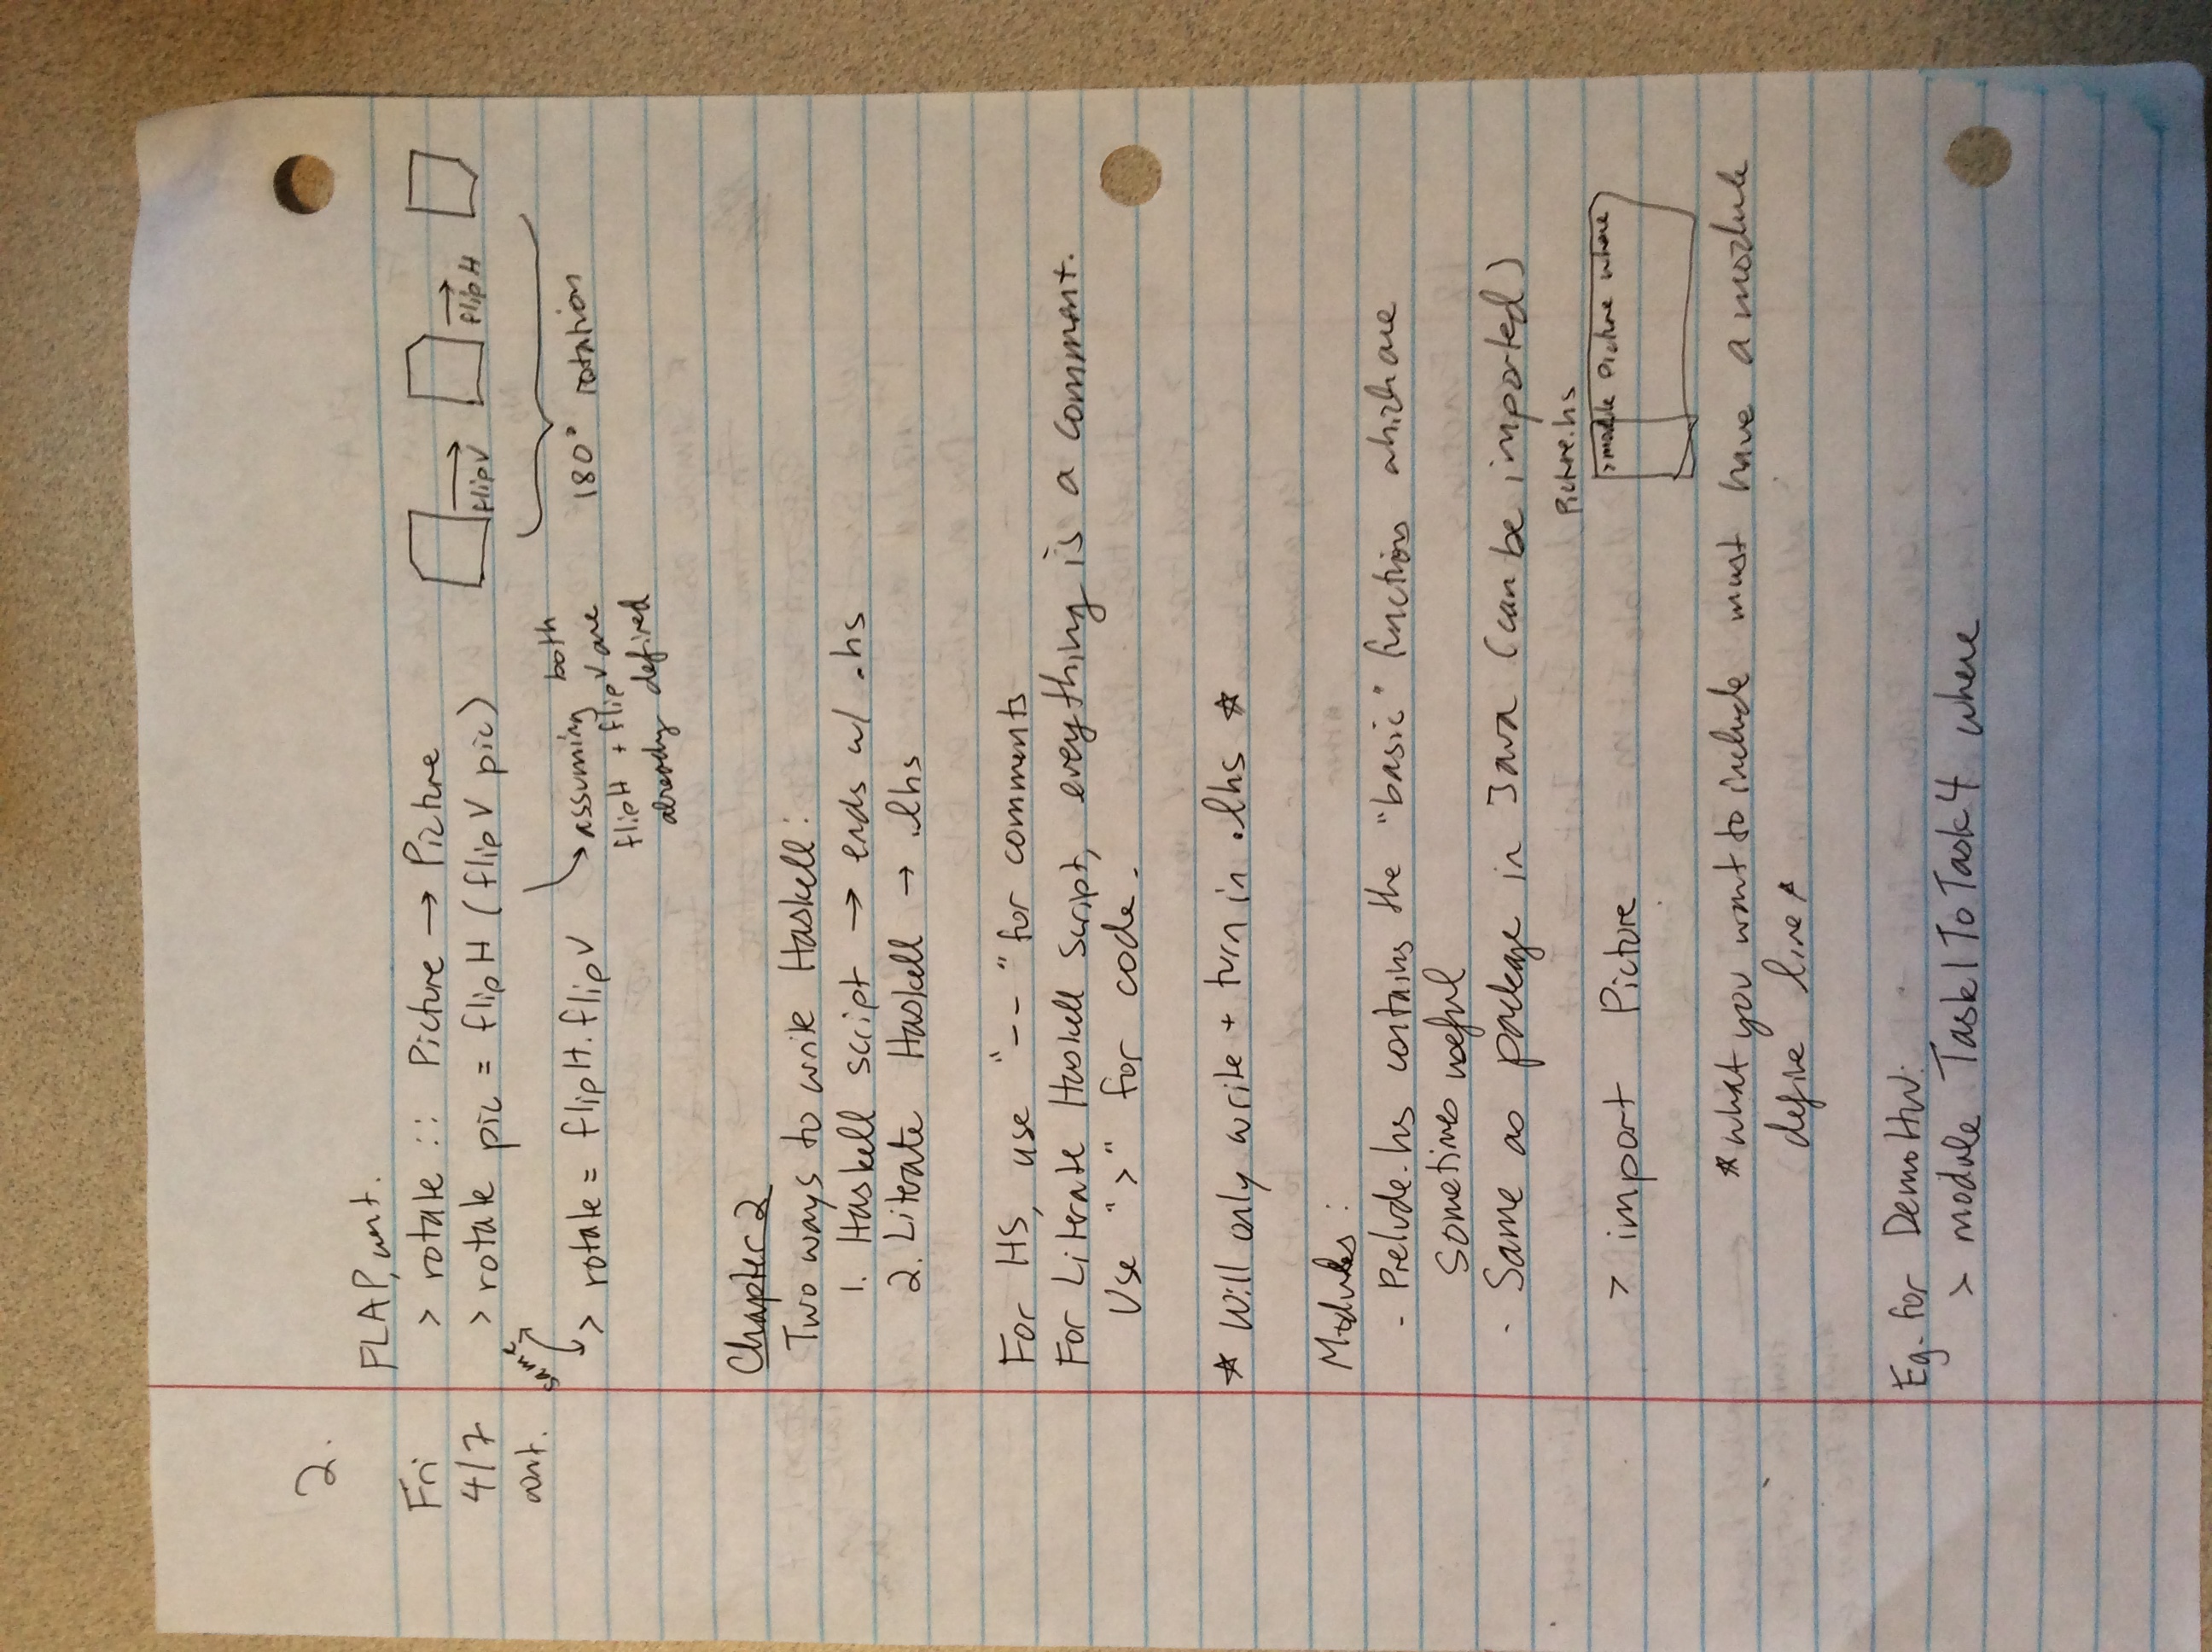 2.
FLAP, cont.
Fri
4/7
cont.
> rotate :: Picture → Picture
> rotate pic = flipH (flipV pic)
same
> rotate = flipH . flipV
assuming both
flipH + flipV are
already defined
flipV
flipH
180° rotation
Chapter 2
Two ways to write Haskell:
1. Haskell script → ends w/ .hs
2. Literate Haskell → .lhs
For HS, use "--" for comments
For Literate Haskell Script, everything is a comment.
Use ">" for code.
☆ Will only write + turn in .lhs ☆
Modules:
- Prelude.hs contains the "basic" functions which are
sometimes useful
- Same as package in Java (can be imported)
Picture.hs
> module Picture where
> import Picture
* what you want to include must have a module
define line *
Eg. for DemoHW:
> module Task1ToTask4 where